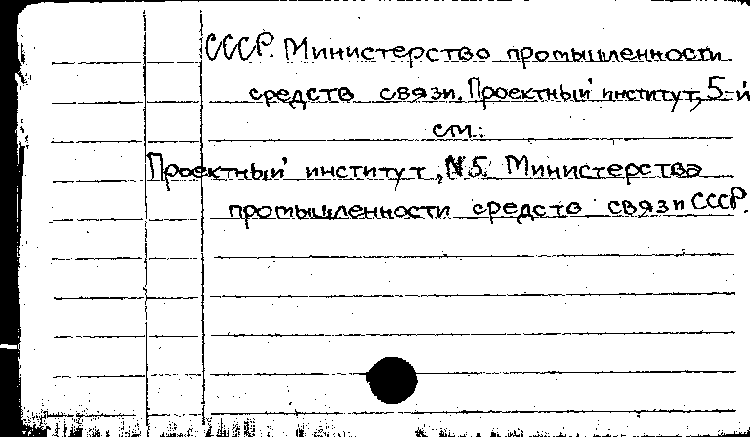 СССР. Министерство промышленности
средств связи. Проектный институт, 5-й
см.:
Проектный институт, №5 Министерства
промышленности средств связи СССР.